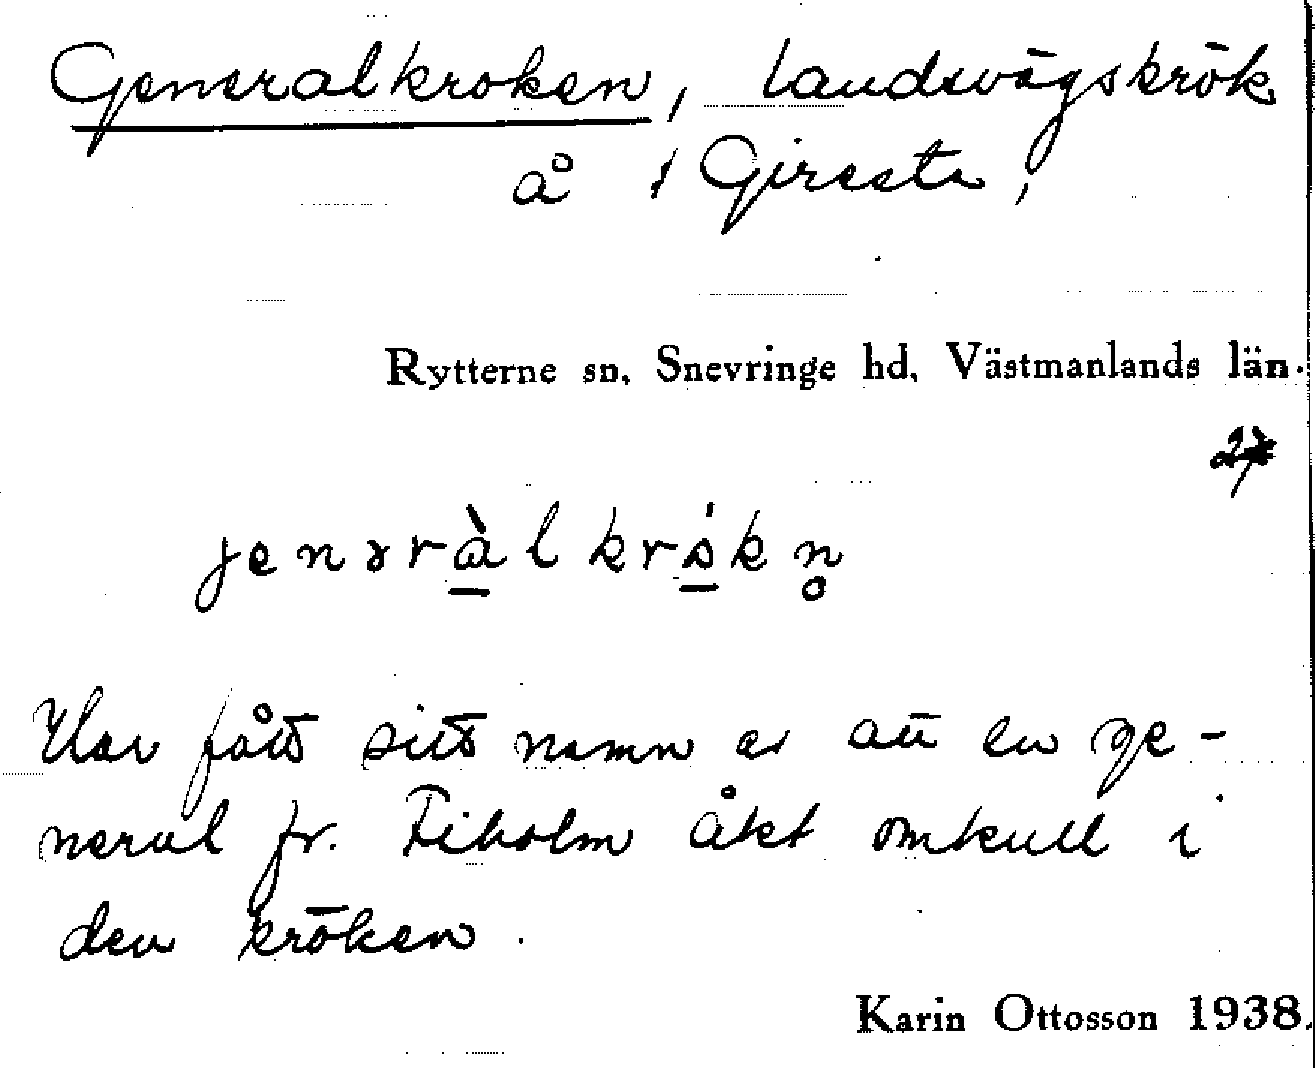 Generalkroken, landsvägskrök
å / Giresta,
Rytterne sn, Snevringe hd, Västmanlands län.
jenəràlkrókn̥
Har fått sitt namn av att en ge-
neral fr. Fiholm åkt omkull i
den kröken.
Karin Ottosson 1938.